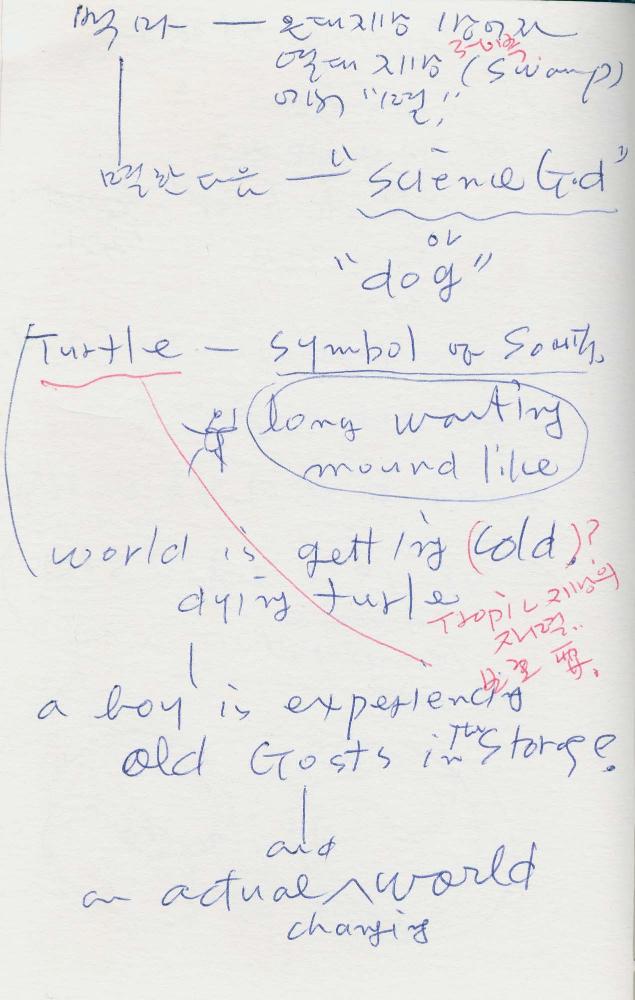 백마 — 온대지방
열대 지방 (Swamp)
에서
멸한다음 — "Science God"
or
"dog"
Turtle — Symbol of South.
long waiting
mound like
world is getting (cold.)?
dying turtle
Tropic 지방의
a boy is experiencing
old Gosts in The Storage.
and
an actual ^ world
changing